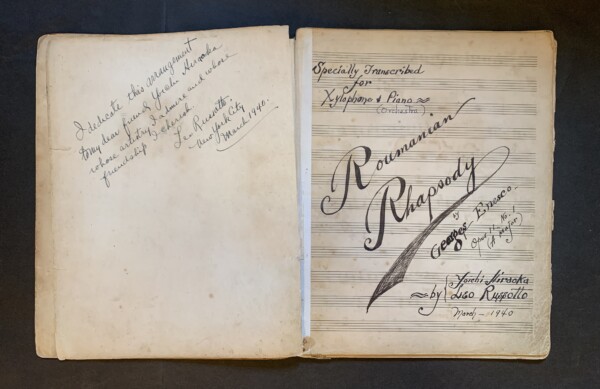 I dedicate this arrangement
to my dear friend, Yoichi Hiraoka
whose artistry I admire and whose
friendship I cherish
Leo Russotto
New York City
March 1940.
Specially Transcribed
for
Xylophone & Piano
(Orchestra)
Roumanian
Rhapsody
by
Georges Enesco
Opus 11 - No. 1
(A major)
by { Yoichi Hiraoka
Leo Russotto
March - 1940